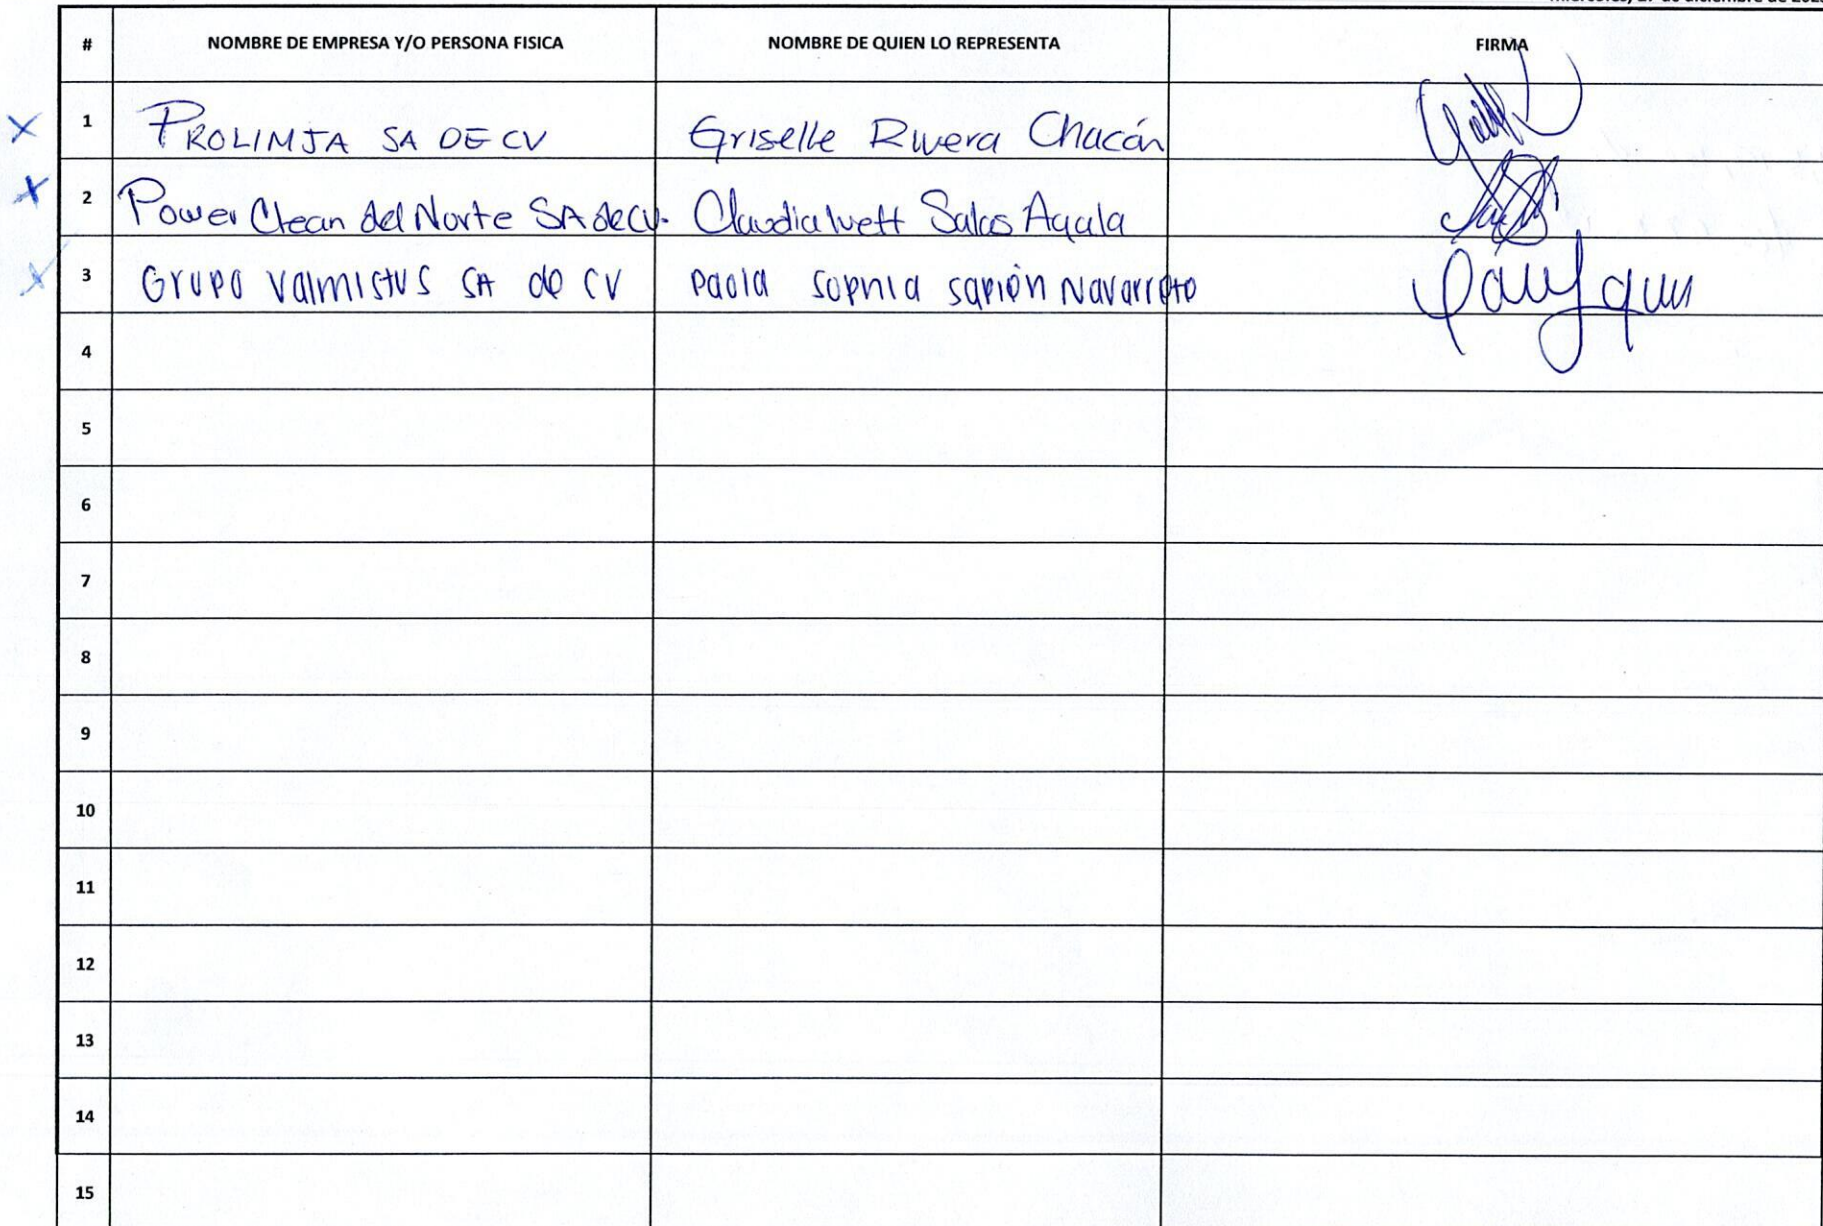 miércoles, 27 de diciembre de 202
# NOMBRE DE EMPRESA Y/O PERSONA FISICA NOMBRE DE QUIEN LO REPRESENTA FIRMA
X 1 PROLIMJA SA DE CV Griselle Rivera Chacón
X 2 Power Clean del Norte SA de CV. Claudia Ivett Salas Ayala
X 3 Grupo Valmistus SA de CV Paola Sophia Navarrete
4
5
6
7
8
9
10
11
12
13
14
15